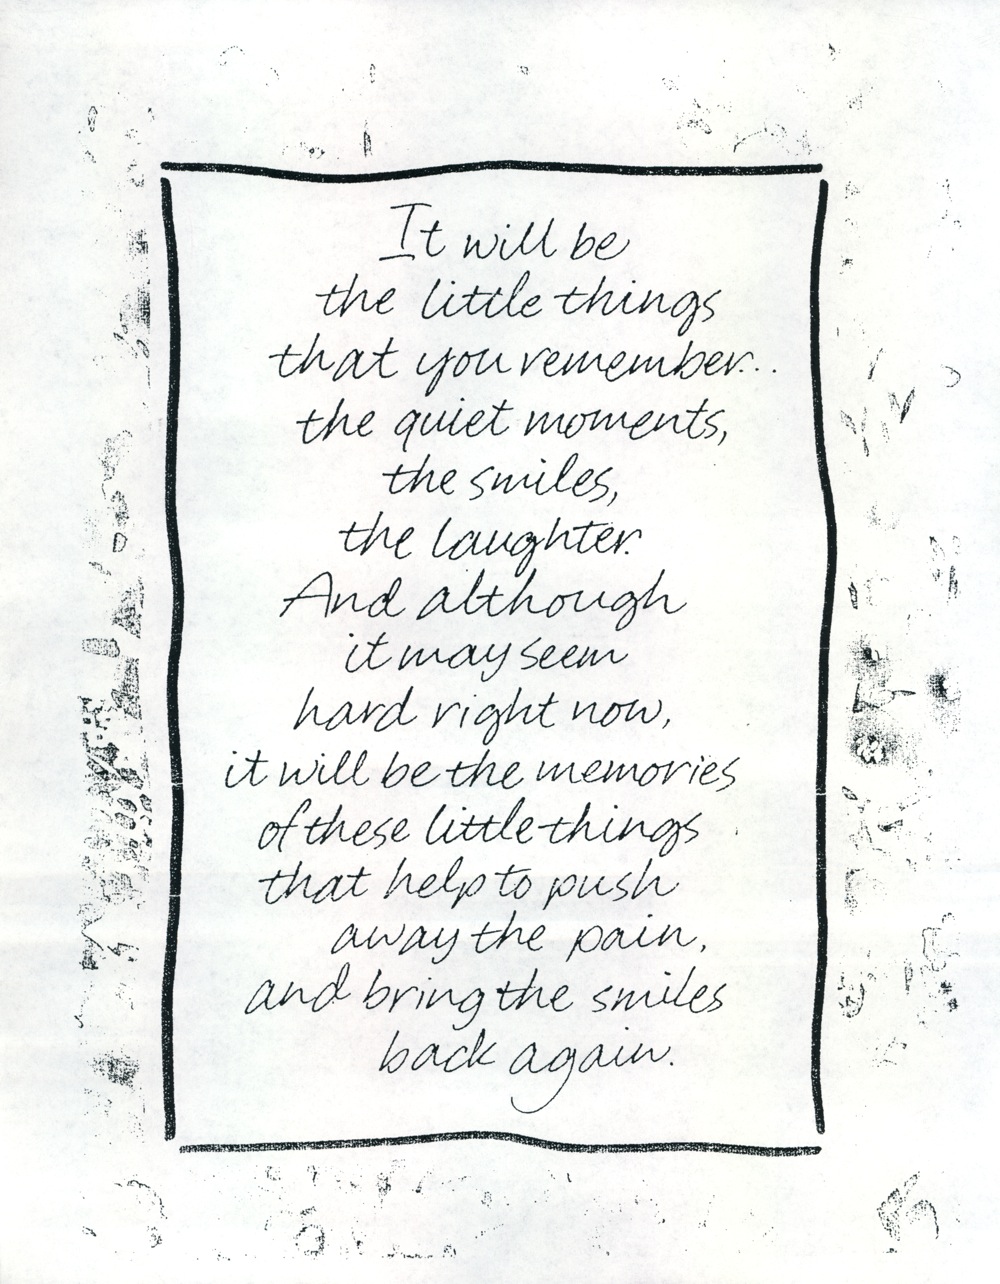 It will be
the little things
that you remember...
the quiet moments,
the smiles,
the laughter.
And although
it may seem
hard right now,
it will be the memories
of these little things
that help to push
away the pain,
and bring the smiles
back again.